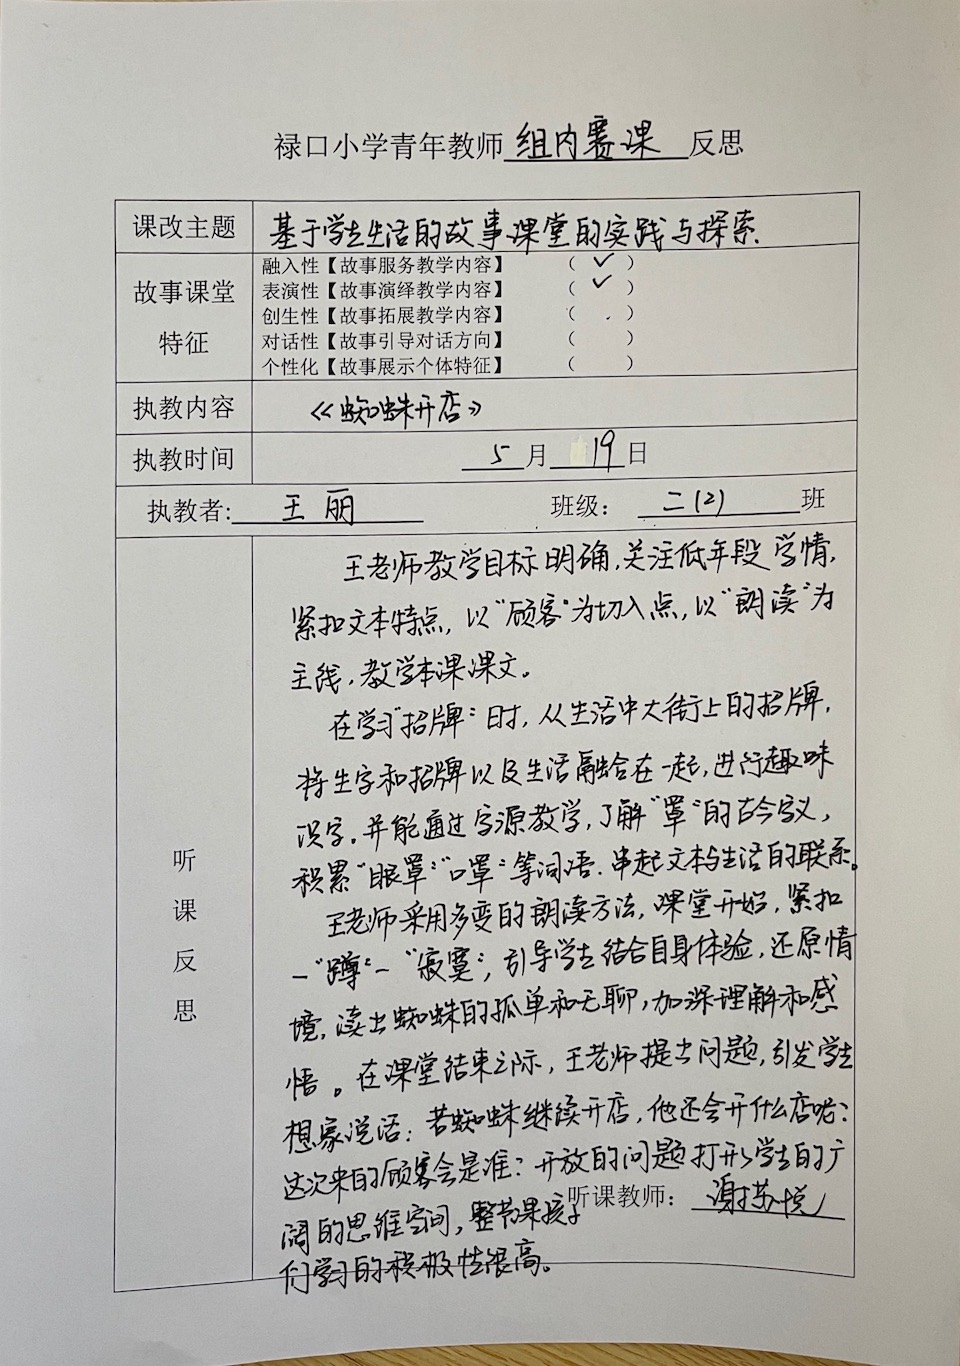 禄口小学青年教师组内赛课反思
课改主题 基于学生生活的故事课堂的实践与探索.
故事课堂
特征
融入性【故事服务教学内容】 （ ✓ ）
表演性【故事演绎教学内容】 （ ✓ ）
创生性【故事拓展教学内容】 （ ）
对话性【故事引导对话方向】 （ ）
个性化【故事展示个体特征】 （ ）
执教内容 《蜘蛛开店》
执教时间 5月19日
执教者: 王丽 班级： 二(2) 班
听课反思
王老师教学目标明确,关注低年段学情,
紧扣文本特点, 以"顾客"为切入点, 以"朗读"为
主线, 教学本课课文。
在学习"招牌"时, 从生活中大街上的招牌,
将生字和招牌以及生活融合在一起, 进行趣味
识字. 并能通过字源教学, 了解"罩"的古今字义,
积累"眼罩""口罩"等词语. 串起文本与生活的联系。
王老师采用多变的朗读方法, 课堂开始, 紧扣
一"蹲"一"寂寞", 引导学生结合自身体验, 还原情
境, 读出蜘蛛的孤单和无聊, 加深理解和感
悟。在课堂结束之际, 王老师提出问题, 引发学生
想象说话: 若蜘蛛继续开店, 他还会开什么店呢?
这次来的顾客会是谁? 开放的问题打开学生的广
阔的思维空间, 整节课孩子
们学习的积极性很高。
听课教师： 谢苏悦